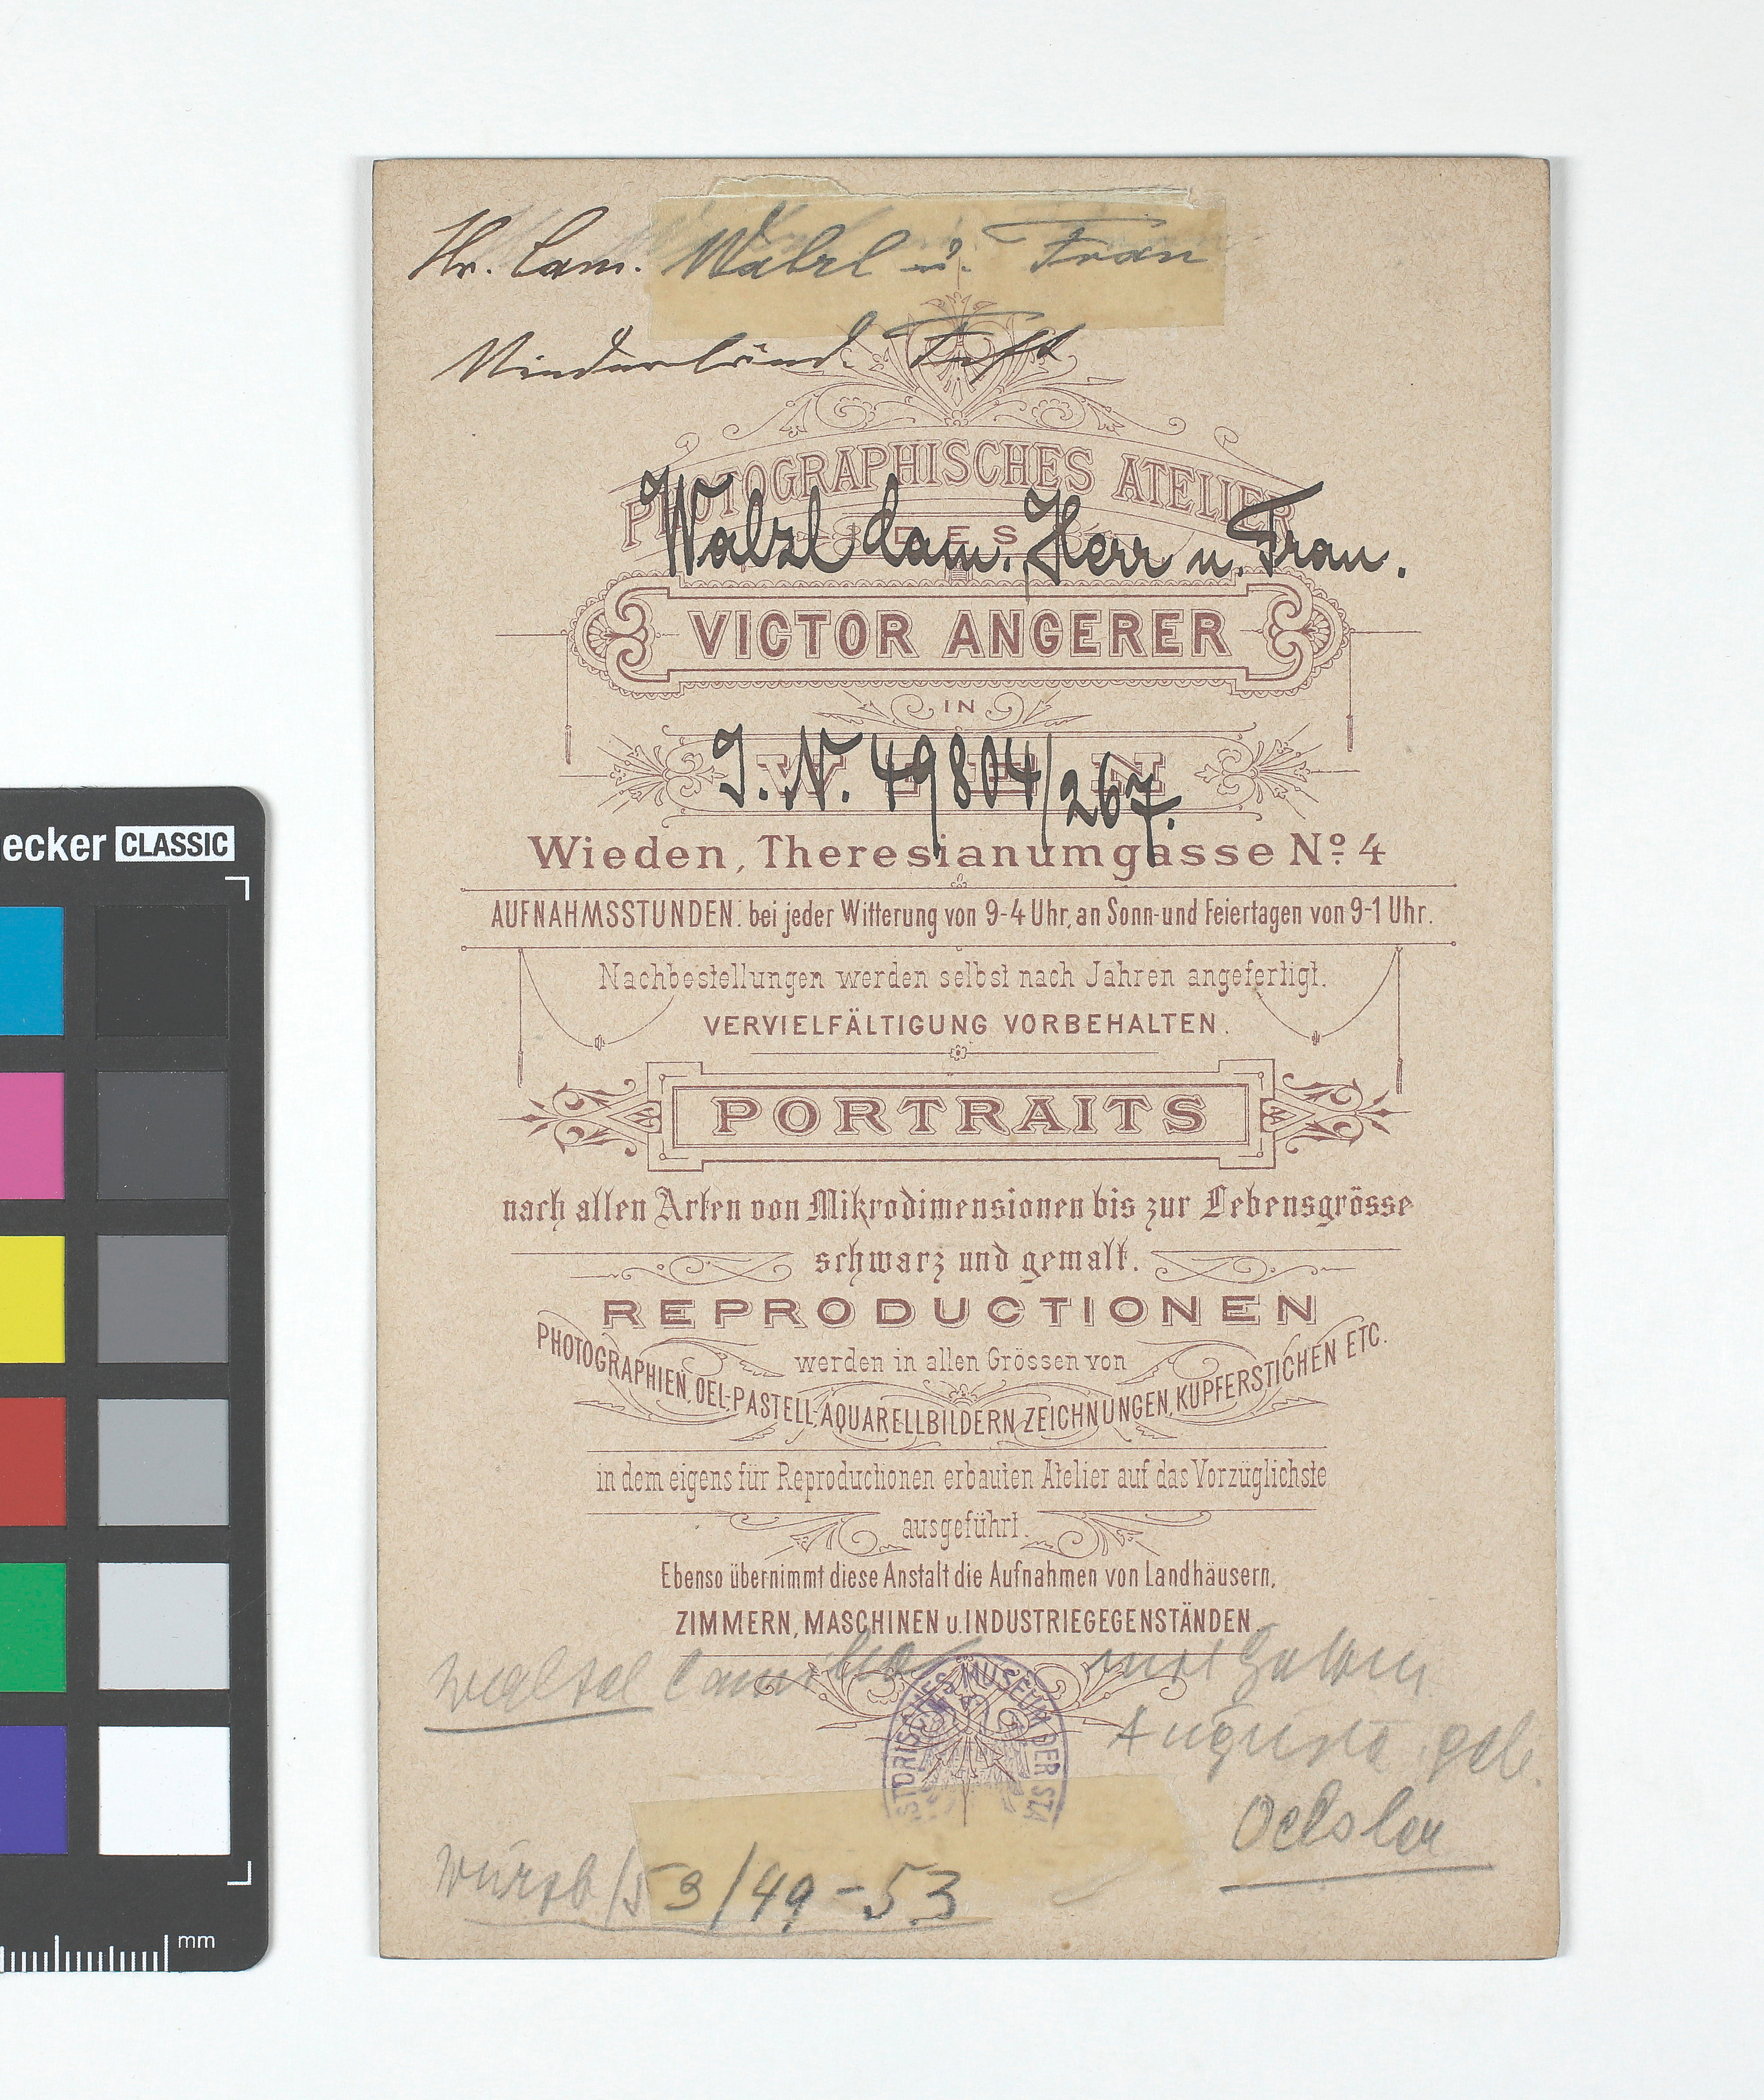 Hr. Cam. Walzl u. Frau
Niederländ. Fest
PHOTOGRAPHISCHES ATELIER
DES
Walzl Cam. Herr u. Frau.
VICTOR ANGERER
IN
WIEN
I. N. 49804/267.
Wieden, Theresianumgasse No. 4
AUFNAHMSSTUNDEN: bei jeder Witterung von 9-4 Uhr, an Sonn-und Feiertagen von 9-1 Uhr.
Nachbestellungen werden selbst nach Jahren angefertigt.
VERVIELFÄLTIGUNG VORBEHALTEN.
PORTRAITS
nach allen Arten von Mikrodimensionen bis zur Lebensgrösse
schwarz und gemalt.
REPRODUCTIONEN
werden in allen Grössen von
PHOTOGRAPHIEN, OEL-PASTELL-AQUARELLBILDERN, ZEICHNUNGEN, KUPFERSTICHEN ETC.
in dem eigens für Reproductionen erbauten Atelier auf das Vorzüglichste
ausgeführt.
Ebenso übernimmt diese Anstalt die Aufnahmen von Landhäusern,
ZIMMERN, MASCHINEN u. INDUSTRIEGEGENSTÄNDEN.
Camillo mit
Auguste geb.
Oelsler
STORISCHES MUSEUM DER STA
Würzb/53/49-53
ecker CLASSIC
mm